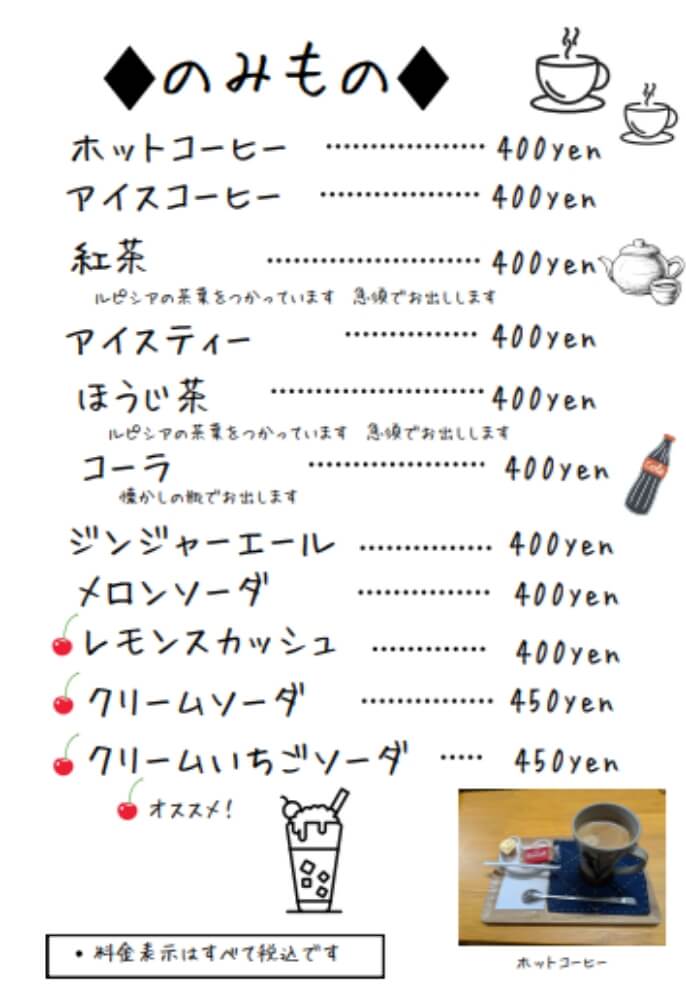 ♦のみもの♦
ホットコーヒー ················ 400yen
アイスコーヒー ················ 400yen
紅茶 ······················ 400yen
ルピシアの茶葉をつかっています 急須でお出しします
アイスティー ·············· 400yen
ほうじ茶 ······················ 400yen
ルピシアの茶葉をつかっています 急須でお出しします
コーラ ·················· 400yen
懐かしの瓶でお出します
Cola
ジンジャーエール ·············· 400yen
メロンソーダ ·············· 400yen
レモンスカッシュ ············ 400yen
クリームソーダ ·············· 450yen
クリームいちごソーダ ····· 450yen
オススメ!
• 料金表示はすべて税込です
ホットコーヒー